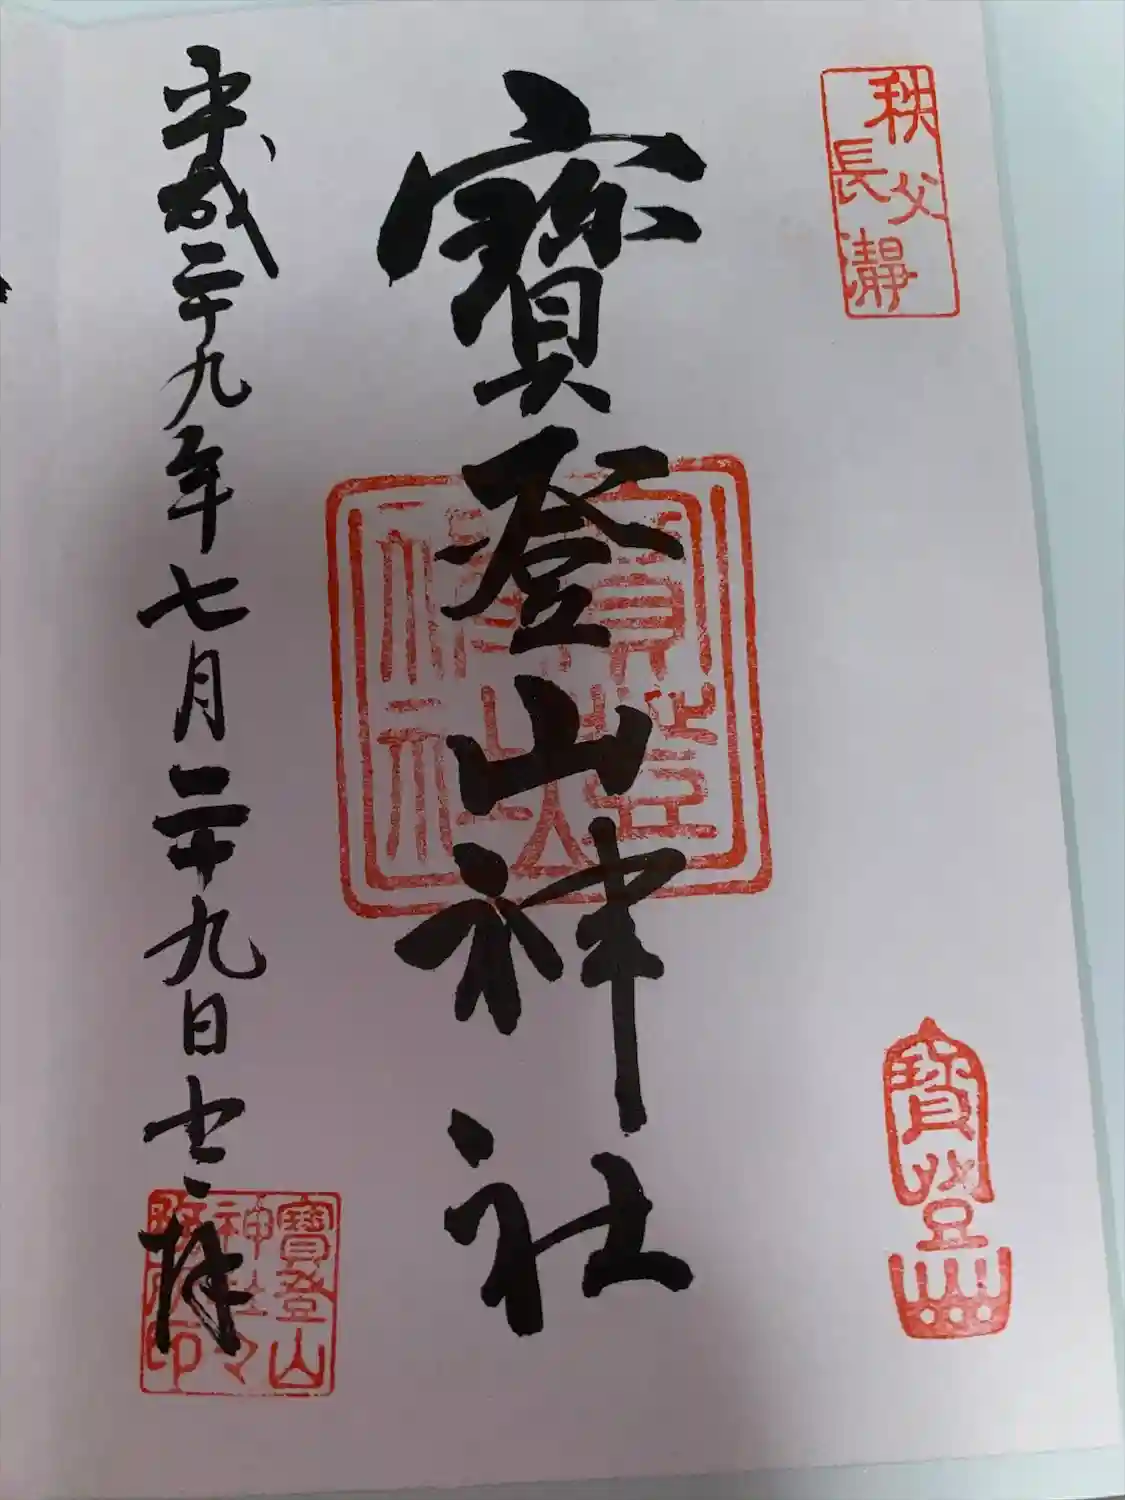 秩父
長瀞
寶登山
寶登山神社
寶登山神社
平成二十九年七月二十九日 拝
寶登山
神社
印